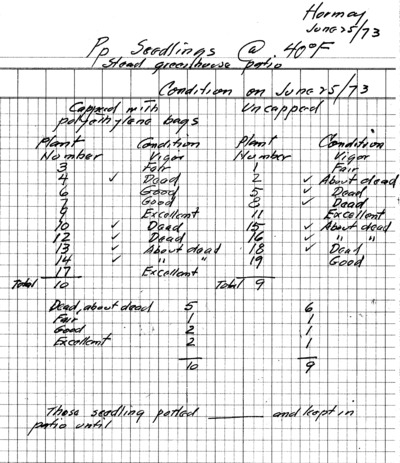 Hormay
June 25/73
Pp Seedlings @ 40°F
Stead greenhouse patio
Condition on June 25/73
Capped with Uncapped
polyethylene bags
Plant Condition Plant Condition
Number Vigor Number Vigor
3 Fair Fair
4 ✓ Dead 2 ✓ About dead
6 Good 5 ✓ Dead
7 Good 8 ✓ Dead
9 Excellent 11 Excellent
10 ✓ Dead 15 ✓ About dead
12 ✓ Dead 16 ✓ " "
13 ✓ About dead 18 ✓ Dead
14 ✓ " " 19 Good
17 Excellent
Total 10 Total 9
Dead, about dead 5 6
Fair 1 1
Good 2 1
Excellent 2 1
10 9
These seedling potted ______ and kept in
patio until